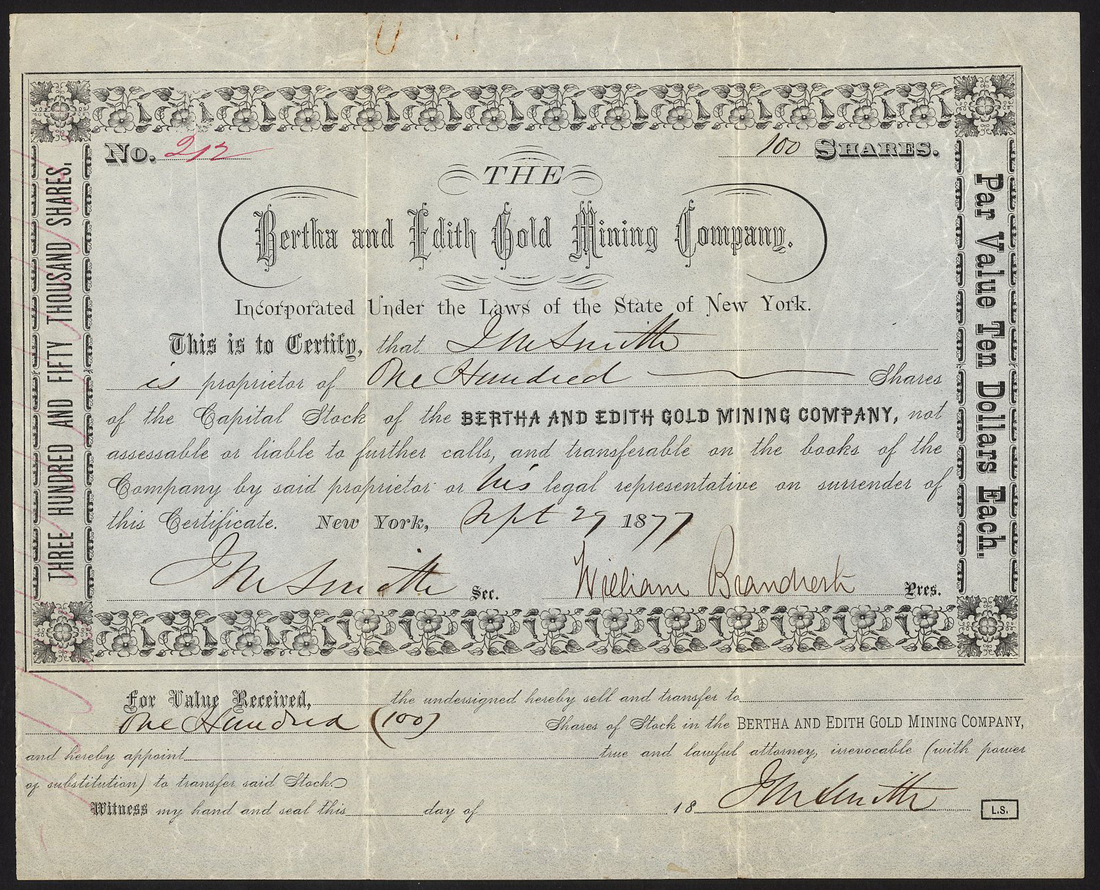 No. 212
100 SHARES.
THE
Bertha and Edith Gold Mining Company.
Incorporated Under the Laws of the State of New York.
This is to Certify, that J M Smith
is proprietor of One Hundred Shares
of the Capital Stock of the BERTHA AND EDITH GOLD MINING COMPANY, not
assessable or liable to further calls, and transferable on the books of the
Company by said proprietor or his legal representative on surrender of
this Certificate. New York, Sept 29 1877
J M Smith Sec. William Brandreth Pres.
THREE HUNDRED AND FIFTY THOUSAND SHARES.
Par Value Ten Dollars Each.
For Value Received, the undersigned hereby sell and transfer to
One Hundred (100) Shares of Stock in the BERTHA AND EDITH GOLD MINING COMPANY,
and hereby appoint true and lawful attorney, irrevocable (with power
of substitution) to transfer said Stock.
Witness my hand and seal this day of 18 J M Smith L.S.